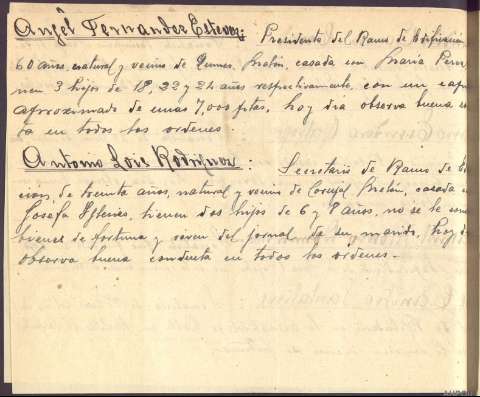 Angel Fernandez Estevez: Presidente del Ramo de Edificación
60 años, natural y vecino de Quines, Melón, casado con Maria Pere
nen 3 hijos de 18, 22 y 24 años respectivamente, con un capi
aproximado de unas 7,000 ptas, hoy dia observa buena
ta en todos los ordenes
Antonio Rodriguez: Secretario de Ramo de
cion, de treinta años, natural y vecino de Melón, casado
Josefa Iglesias, tienen dos hijos de 6 y 8 años, no se le cono
bienes de fortuna y viven del jornal de su marido, hoy
observa buena conducta en todos los ordenes.-